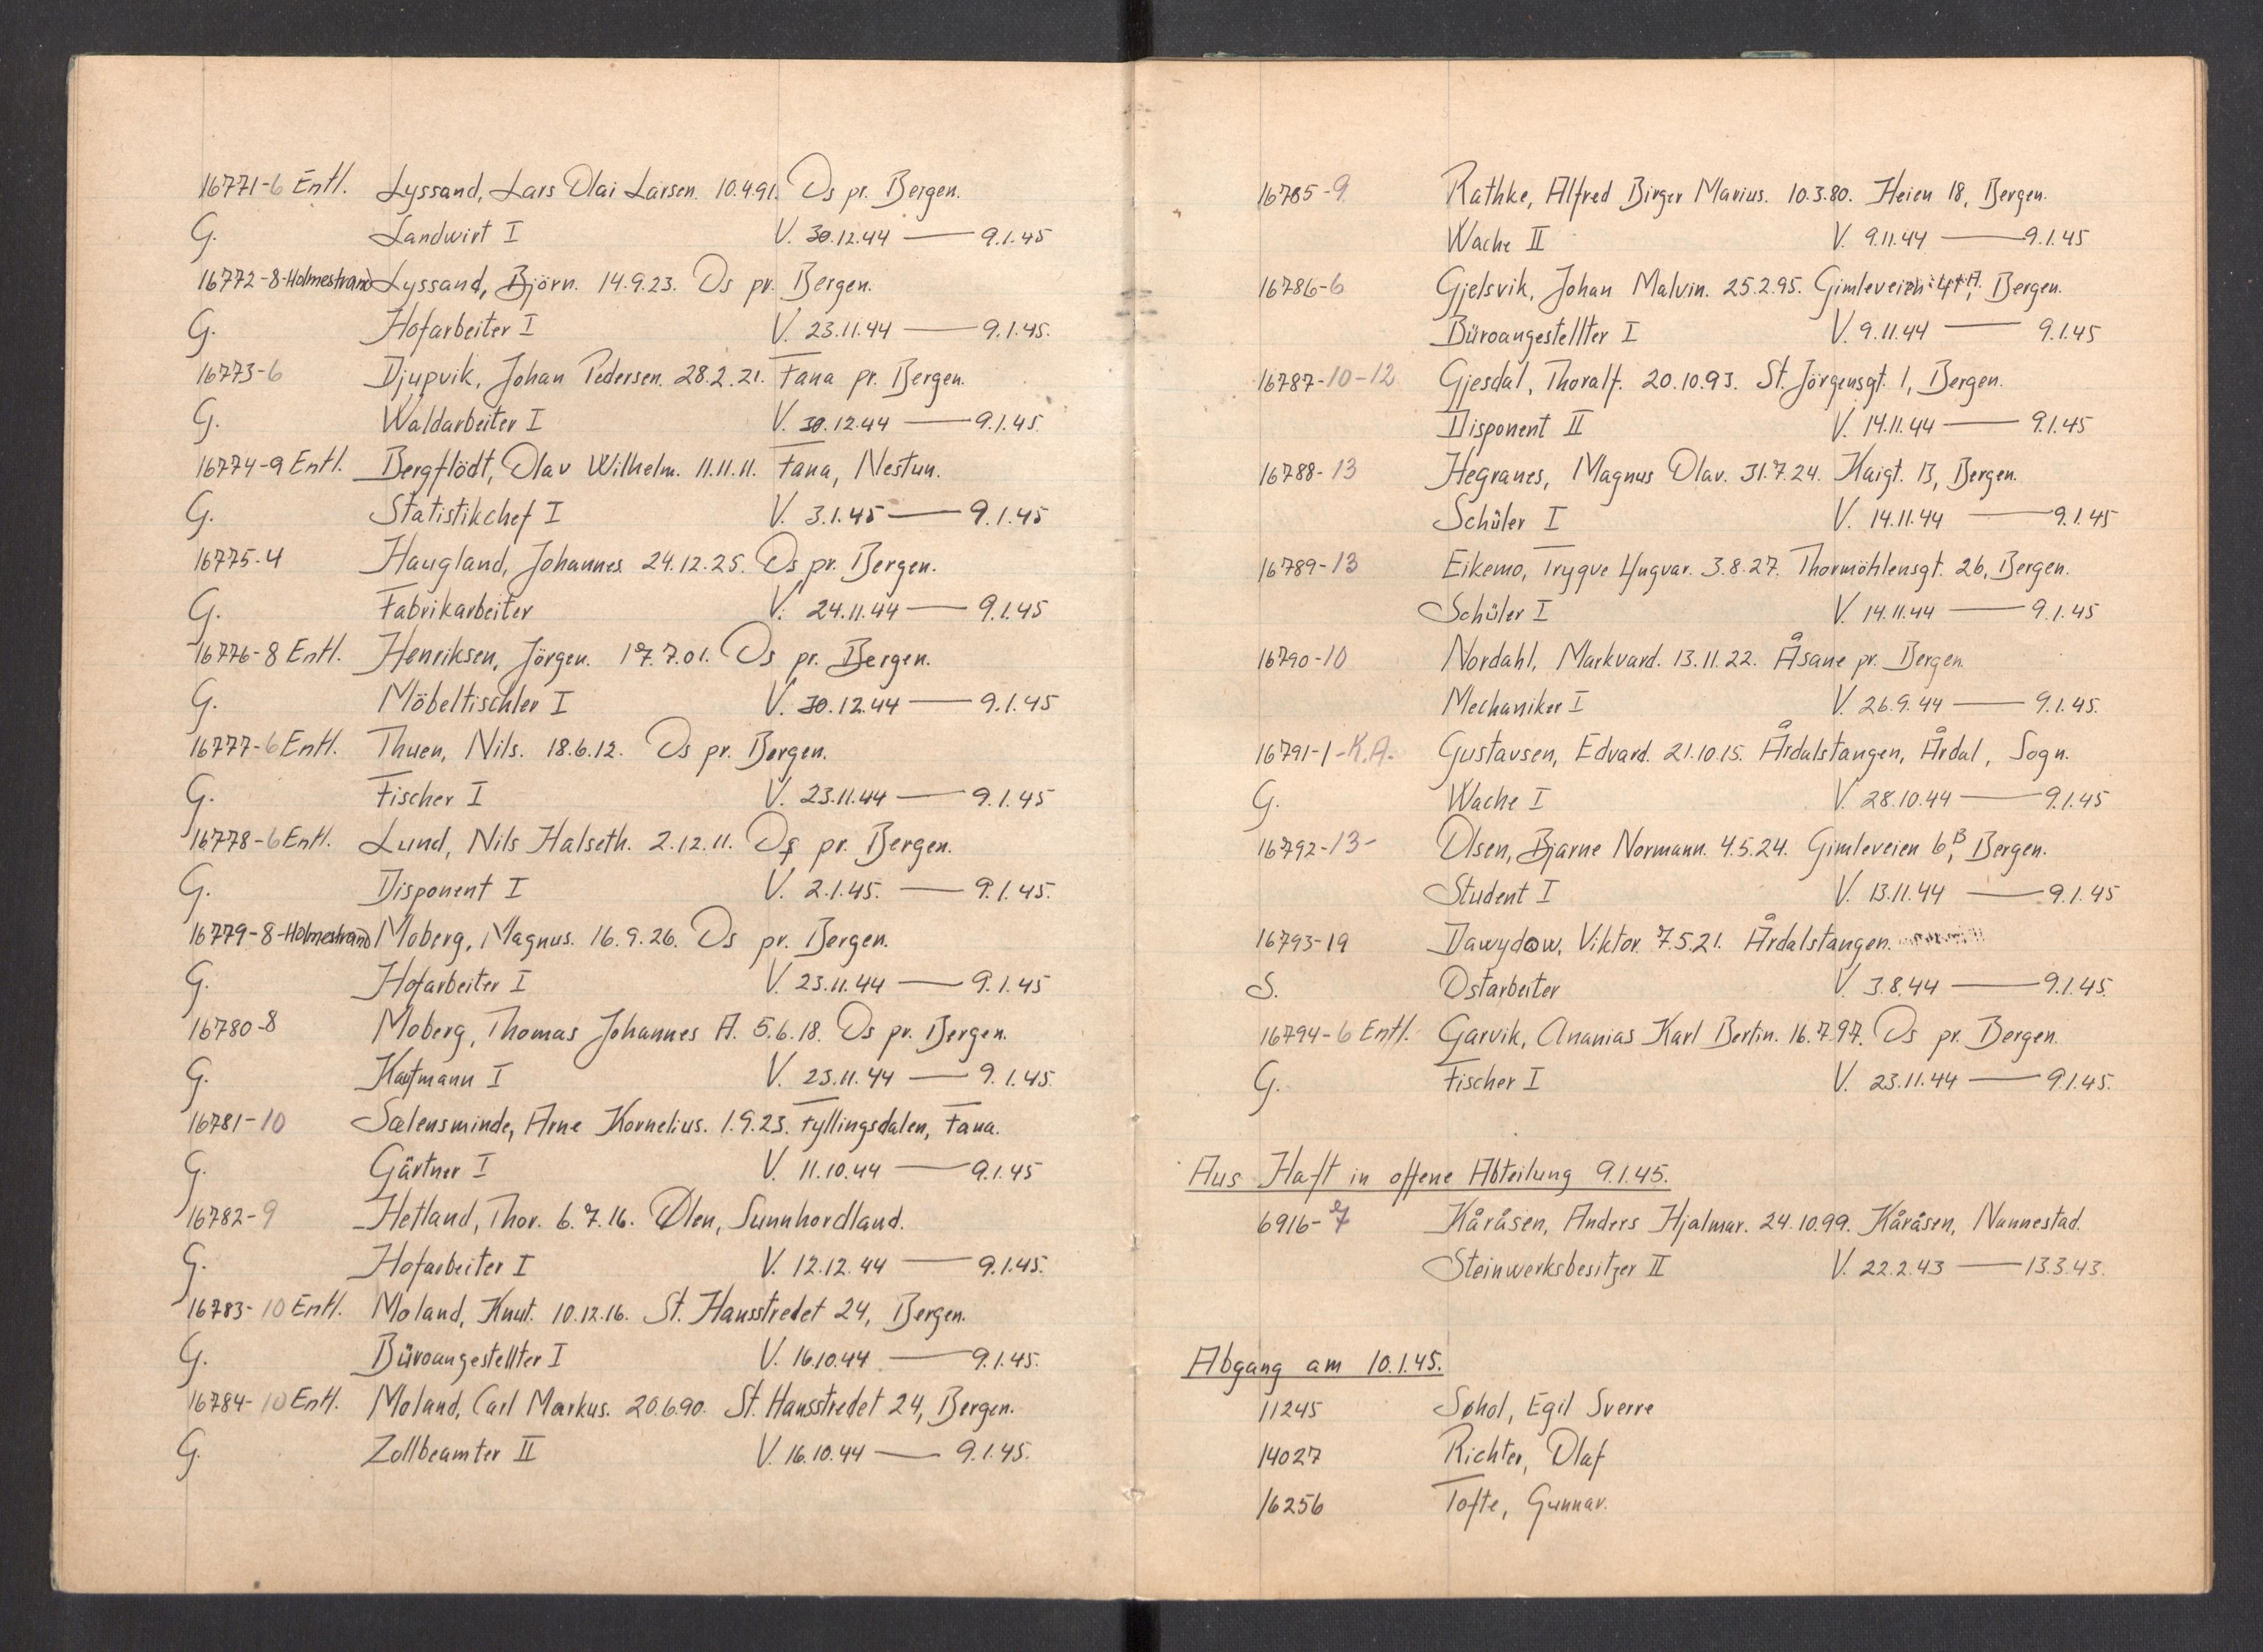 16771-6 Entl. Lyssand, Lars Olai Larsen. 10.4.91. Os pr. Bergen.
G. Landwirt I V. 30.12.44 — 9.1.45
16772-8-Holmestrand Lyssand, Björn. 14.9.23. Os pr. Bergen.
G. Hofarbeiter I V. 23.11.44 — 9.1.45.
16773-6 Djupvik, Johan Pedersen. 28.2.21. Fana pr. Bergen.
G. Waldarbeiter I V. 30.12.44 — 9.1.45.
16774-9 Entl. Bergflödt, Olav Wilhelm. 11.11.11. Fana, Nestun.
G. Statistikchef I V. 3.1.45 — 9.1.45
16775-4 Haugland, Johannes. 24.12.25. Os pr. Bergen.
G. Fabrikarbeiter V. 24.11.44 — 9.1.45
16776-8 Entl. Henriksen, Jörgen. 17.7.01. Os pr. Bergen.
G. Möbeltischler I V. 30.12.44 — 9.1.45
16777-6 Entl. Thuen, Nils. 18.6.12. Os pr. Bergen.
G. Fischer I V. 23.11.44 — 9.1.45
16778-6 Entl. Lund, Nils Halseth. 2.12.11. Os pr. Bergen.
G. Disponent I V. 2.1.45. — 9.1.45.
16779-8-Holmestrand Moberg, Magnus. 16.9.26. Os pr. Bergen.
G. Hofarbeiter I V. 23.11.44 — 9.1.45
16780-8 Moberg, Thomas Johannes A. 5.6.18. Os pr. Bergen.
G. Kaufmann I V. 23.11.44 — 9.1.45.
16781-10 Sælensminde, Arne Kornelius. 1.9.23. Fyllingsdalen, Fana.
G. Gärtner I V. 11.10.44 — 9.1.45
16782-9 Hetland, Thor. 6.7.16. Ølen, Sunnhordland.
G. Hofarbeiter I V. 12.12.44 — 9.1.45.
16783-10 Entl. Moland, Knut. 10.12.16. St. Hansstredet 24, Bergen.
G. Büroangestellter I V. 16.10.44 — 9.1.45.
16784-10 Entl. Moland, Carl Markus. 20.6.90. St. Hansstredet 24, Bergen.
G. Zollbeamter II V. 16.10.44 — 9.1.45.
16785-9 Rathke, Alfred Birger Marius. 10.3.80. Heien 18, Bergen.
Wache II V. 9.11.44 — 9.1.45
16786-6 Gjelsvik, Johan Malvin. 25.2.95. Gimleveien 4A, Bergen.
Büroangestellter I V. 9.11.44 — 9.1.45
16787-10-12 Gjesdal, Thoralf. 20.10.93. St. Jörgensgt. 1, Bergen.
Disponent II V. 14.11.44 — 9.1.45
16788-13 Hegranes, Magnus Olav. 31.7.24. Kaigt. 13, Bergen.
Schüler I V. 14.11.44 — 9.1.45
16789-13 Eikemo, Trygve Yngvar. 3.8.27. Thormöhlensgt. 26, Bergen.
Schüler I V. 14.11.44 — 9.1.45
16790-10 Nordahl, Markvard. 13.11.22. Åsane pr. Bergen
Mechaniker I V. 26.9.44 — 9.1.45.
16791-1-K.A. Gustavsen, Edvard. 21.10.15. Årdalstangen, Årdal, Sogn.
G. Wache I V. 28.10.44 — 9.1.45
16792-13- Olsen, Bjarne Normann. 4.5.24. Gimleveien 6B, Bergen.
Student I V. 13.11.44 — 9.1.45
16793-19 Dawydow, Viktor. 7.5.21. Årdalstangen.
S. Ostarbeiter V. 3.8.44 — 9.1.45.
16794-6 Entl. Garvik, Ananias Karl Bertin. 16.7.97. Os pr. Bergen.
G. Fischer I V. 23.11.44 — 9.1.45.
Aus Haft in offene Abteilung 9.1.45.
6916-7 Kåråsen, Anders Hjalmar. 24.10.99. Kåråsen, Nannestad.
Steinwerksbesitzer II V. 22.2.43 — 13.3.43.
Abgang am 10.1.45.
11245 Søhol, Egil Sverre
14027 Richter, Olaf
16256 Tofte, Gunnar.